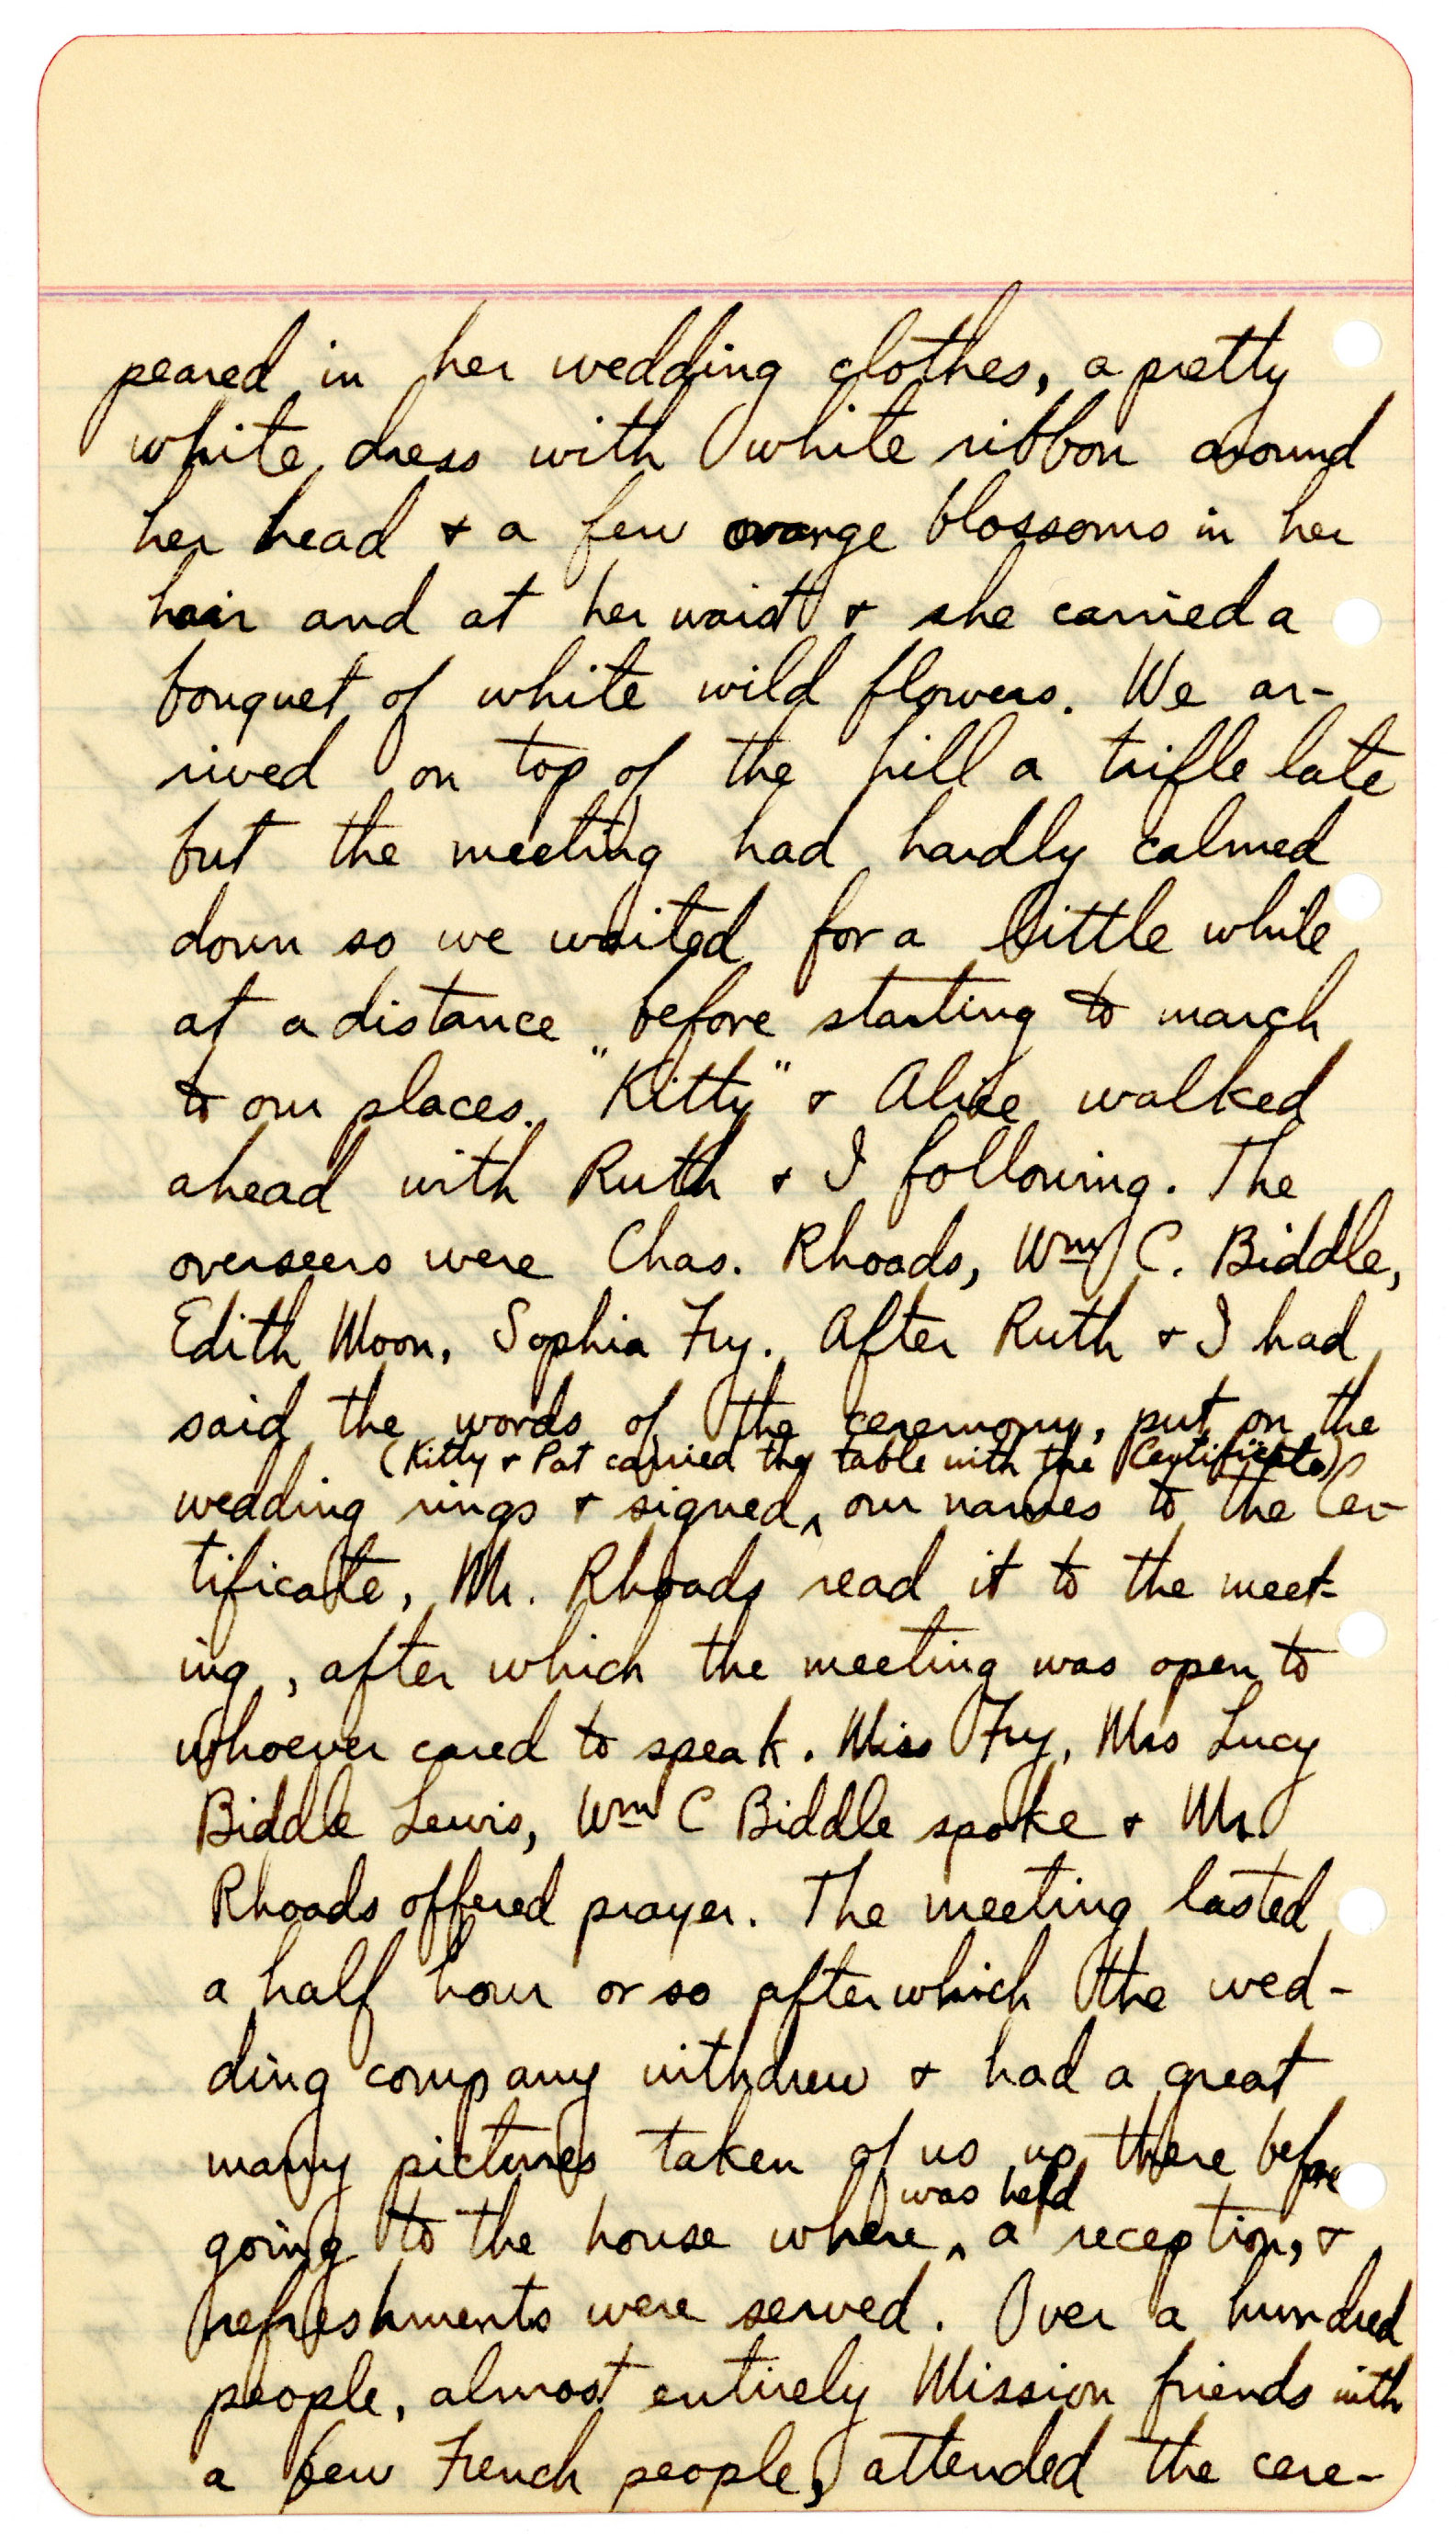 peared in her wedding clothes, a pretty
white dress with white ribbon around
her head + a few orange blossoms in her
hair and at her waist + she carried a
bouquet of white wild flowers. We ar-
rived on top of the hill a trifle late
but the meeting had hardly calmed
down so we waited for a little while
at a distance before starting to march
to our places. "Kitty" + Alice walked
ahead with Ruth + I following. The
overseers were Chas. Rhoads, Wm C. Biddle,
Edith Moon, Sophia Fry. After Ruth + I had
said the words of the ceremony, put on the
(Kitty + Pat carried the table with the Certificate)
wedding rings + signed ^ our names to the Cer-
tificate, Mr. Rhoads read it to the meet-
ing, after which the meeting was open to
whoever cared to speak. Miss Fry, Mrs Lucy
Biddle Lewis, Wm C Biddle spoke + Mr.
Rhoads offered prayer. The meeting lasted
a half hour or so after which the wed-
ding company withdrew + had a great
many pictures taken of us up there before
was held
going to the house where ^ a reception, +
refreshments were served. Over a hundred
people, almost entirely Mission friends with
a few French people, attended the cere-